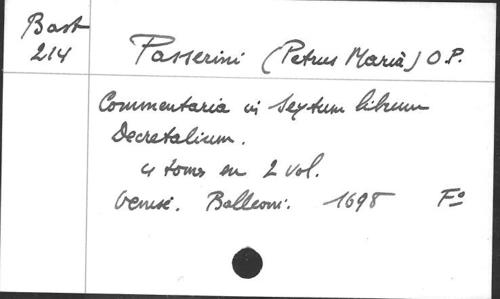 Bast
214
Passerini (Petrus Maria) O.P.
Commentaria in Sextum librum
Decretalium.
4 toms en 2 vol.
Venise. Balleoni. 1698 F°